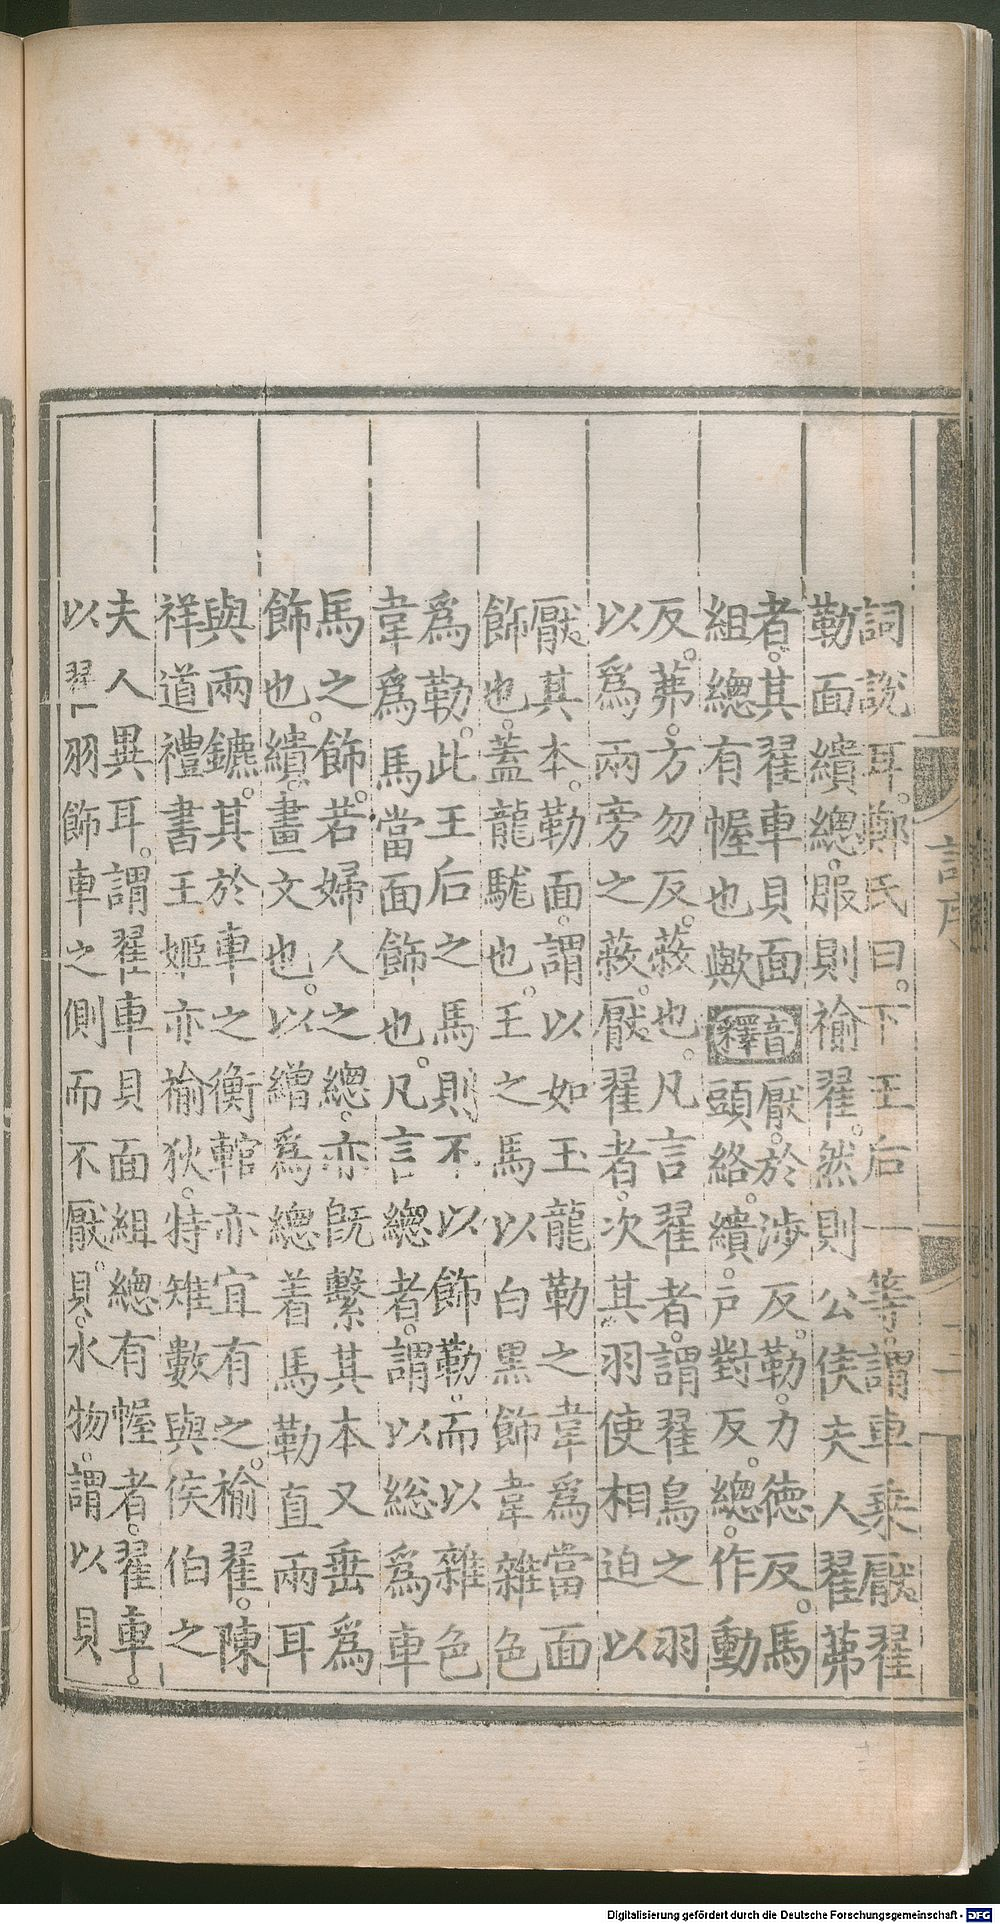 詞說耳。鄭氏曰。下王后一等。謂車乗厭翟
勒面繢總。服則褕翟。然則公侯夫人翟茀
者。其翟車貝面
組總有幄也歟
音釋
厭。於涉反。勒。力德反。馬
頭絡。繢。戸對反。總。作動
反。茀。方勿反。蔽也。凡言翟者。謂翟鳥之羽
以爲兩旁之蔽。厭翟者。次其羽使相迫以
厭其本。勒面。謂以如玉龍勒之韋爲當面
飾也。蓋龍駹也。王之馬以白黒飾韋雜色
爲勒。此王后之馬則不以飾勒。而以雜色
韋爲馬當面飾也。凡言總者。謂以総爲車
馬之飾。若婦人之總。亦旣繫其本又垂爲
飾也。繢。畫文也。以繒爲總着馬勒直兩耳
與兩鑣。其於車之衡輨亦宜有之。褕翟。陳
祥道禮書王姬亦褕狄。特雉數與侯伯之
夫人異耳。謂翟車貝面組總有幄者。翟車。
以翟羽飾車之側而不厭。貝。水物。謂以貝
二
Digitalisierung gefördert durch die Deutsche Forschungsgemeinschaft - DFG